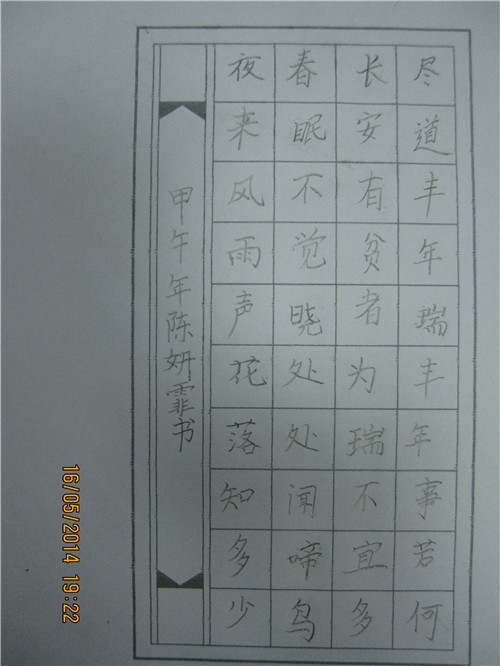 尽道丰年瑞丰年事若何
长安有贫者为瑞不宜多
春眠不觉晓处处闻啼鸟
夜来风雨声花落知多少
甲午年陈妍霏书
16/05/2014 19:22